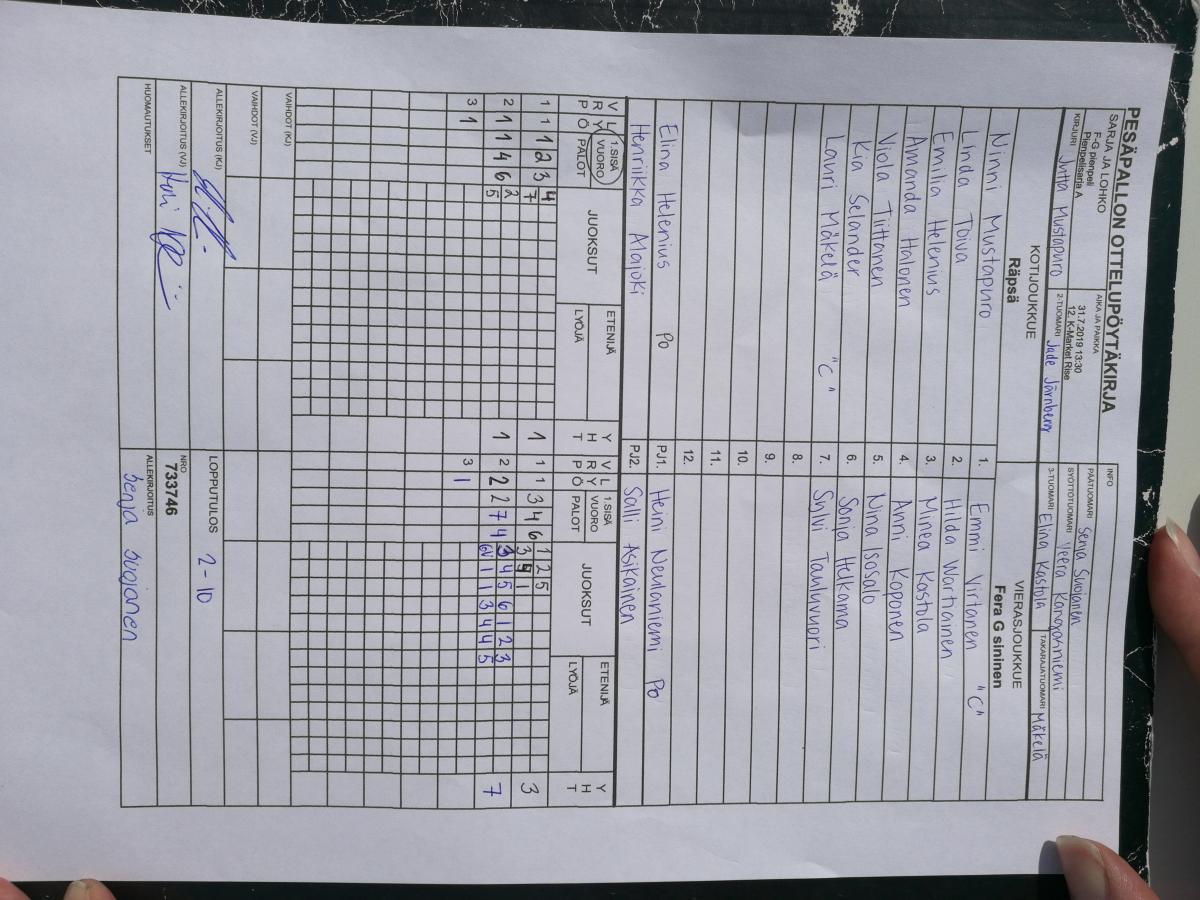 PESÄPALLON OTTELUPÖYTÄKIRJA
SARJA JA LOHKO
F-G pienpeli
Pienpelisarja A
AIKA JA PAIKKA
31.7.2019 13:30
12. K-Market Rise
INFO
PÄÄTUOMARI Senja Suojanen
SYÖTTÖTUOMARI Veera Kangasniemi
KIRJURI Jutta Mustapuro
2-TUOMARI Jade Järnberg
3-TUOMARI Elina Kastola
TAKARAJATUOMARI Mäkelä
KOTIJOUKKUE
Räpsä
VIERASJOUKKUE
Fera G sininen
Ninni Mustapuro 1. Emmi Virtanen "C"
Linda Toiva 2. Hilda Wartiainen
Emilia Helenius 3. Minea Kastola
Amanda Halonen 4. Anni Koponen
Viola Tiittanen 5. Nina Isosalo
Kia Selander 6. Sonja Hulkama
Lauri Mäkelä "C" 7. Sylvi Tauluvuori
8.
9.
10.
11.
12.
Elina Helenius PO PJ1. Heini Neulaniemi PO
Henriikka Alajoki PJ2. Salli Asikainen
V R P L Y Ö 1.SISÄ VUORO PALOT JUOKSUT ETENIJÄ LYÖJÄ Y H T V R P L Y Ö 1.SISÄ VUORO PALOT JUOKSUT ETENIJÄ LYÖJÄ Y H T
1 1 1 2 3 4 7 1 1 1 3 4 6 1 2 5 3 1 3
2 1 1 4 6 2 5 1 2 2 2 7 4 3 4 5 6 1 2 3 1 1 3 4 4 5 7
3 1 3 1
VAIHDOT (KJ)
VAIHDOT (VJ)
ALLEKIRJOITUS (KJ)
LOPPUTULOS 2-10
ALLEKIRJOITUS (VJ)
NRO
733746
HUOMAUTUKSET
ALLEKIRJOITUS
Senja Suojanen